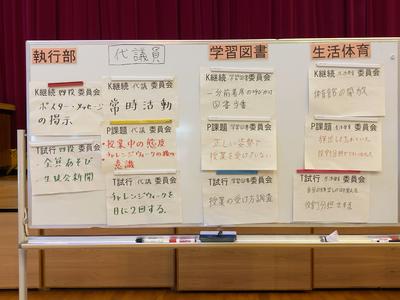 執行部
K継続 四役 委員会
ポスター・メッセージ
の掲示
T試行 四役 委員会
・全怒あそび
・生徒会新聞
代議員
K継続 代議 委員会
常時活動
P課題 代議 委員会
・授業中の態度
チャレンジウィークの時の
意識
T試行 代議 委員会
チャレンジウィークを
月に2回する。
学習図書
K継続 学習図書 委員会
一分前着席の呼びかけ
図書当番
P課題 学習図書 委員会
正しい姿勢で
授業を受けていない
T試行 学習図書 委員会
授業の受け方調査
生活体育
K継続 生活体育 委員会
体育館の開放
P課題 生活体育 委員会
T試行 生活体育 委員会
役割分担